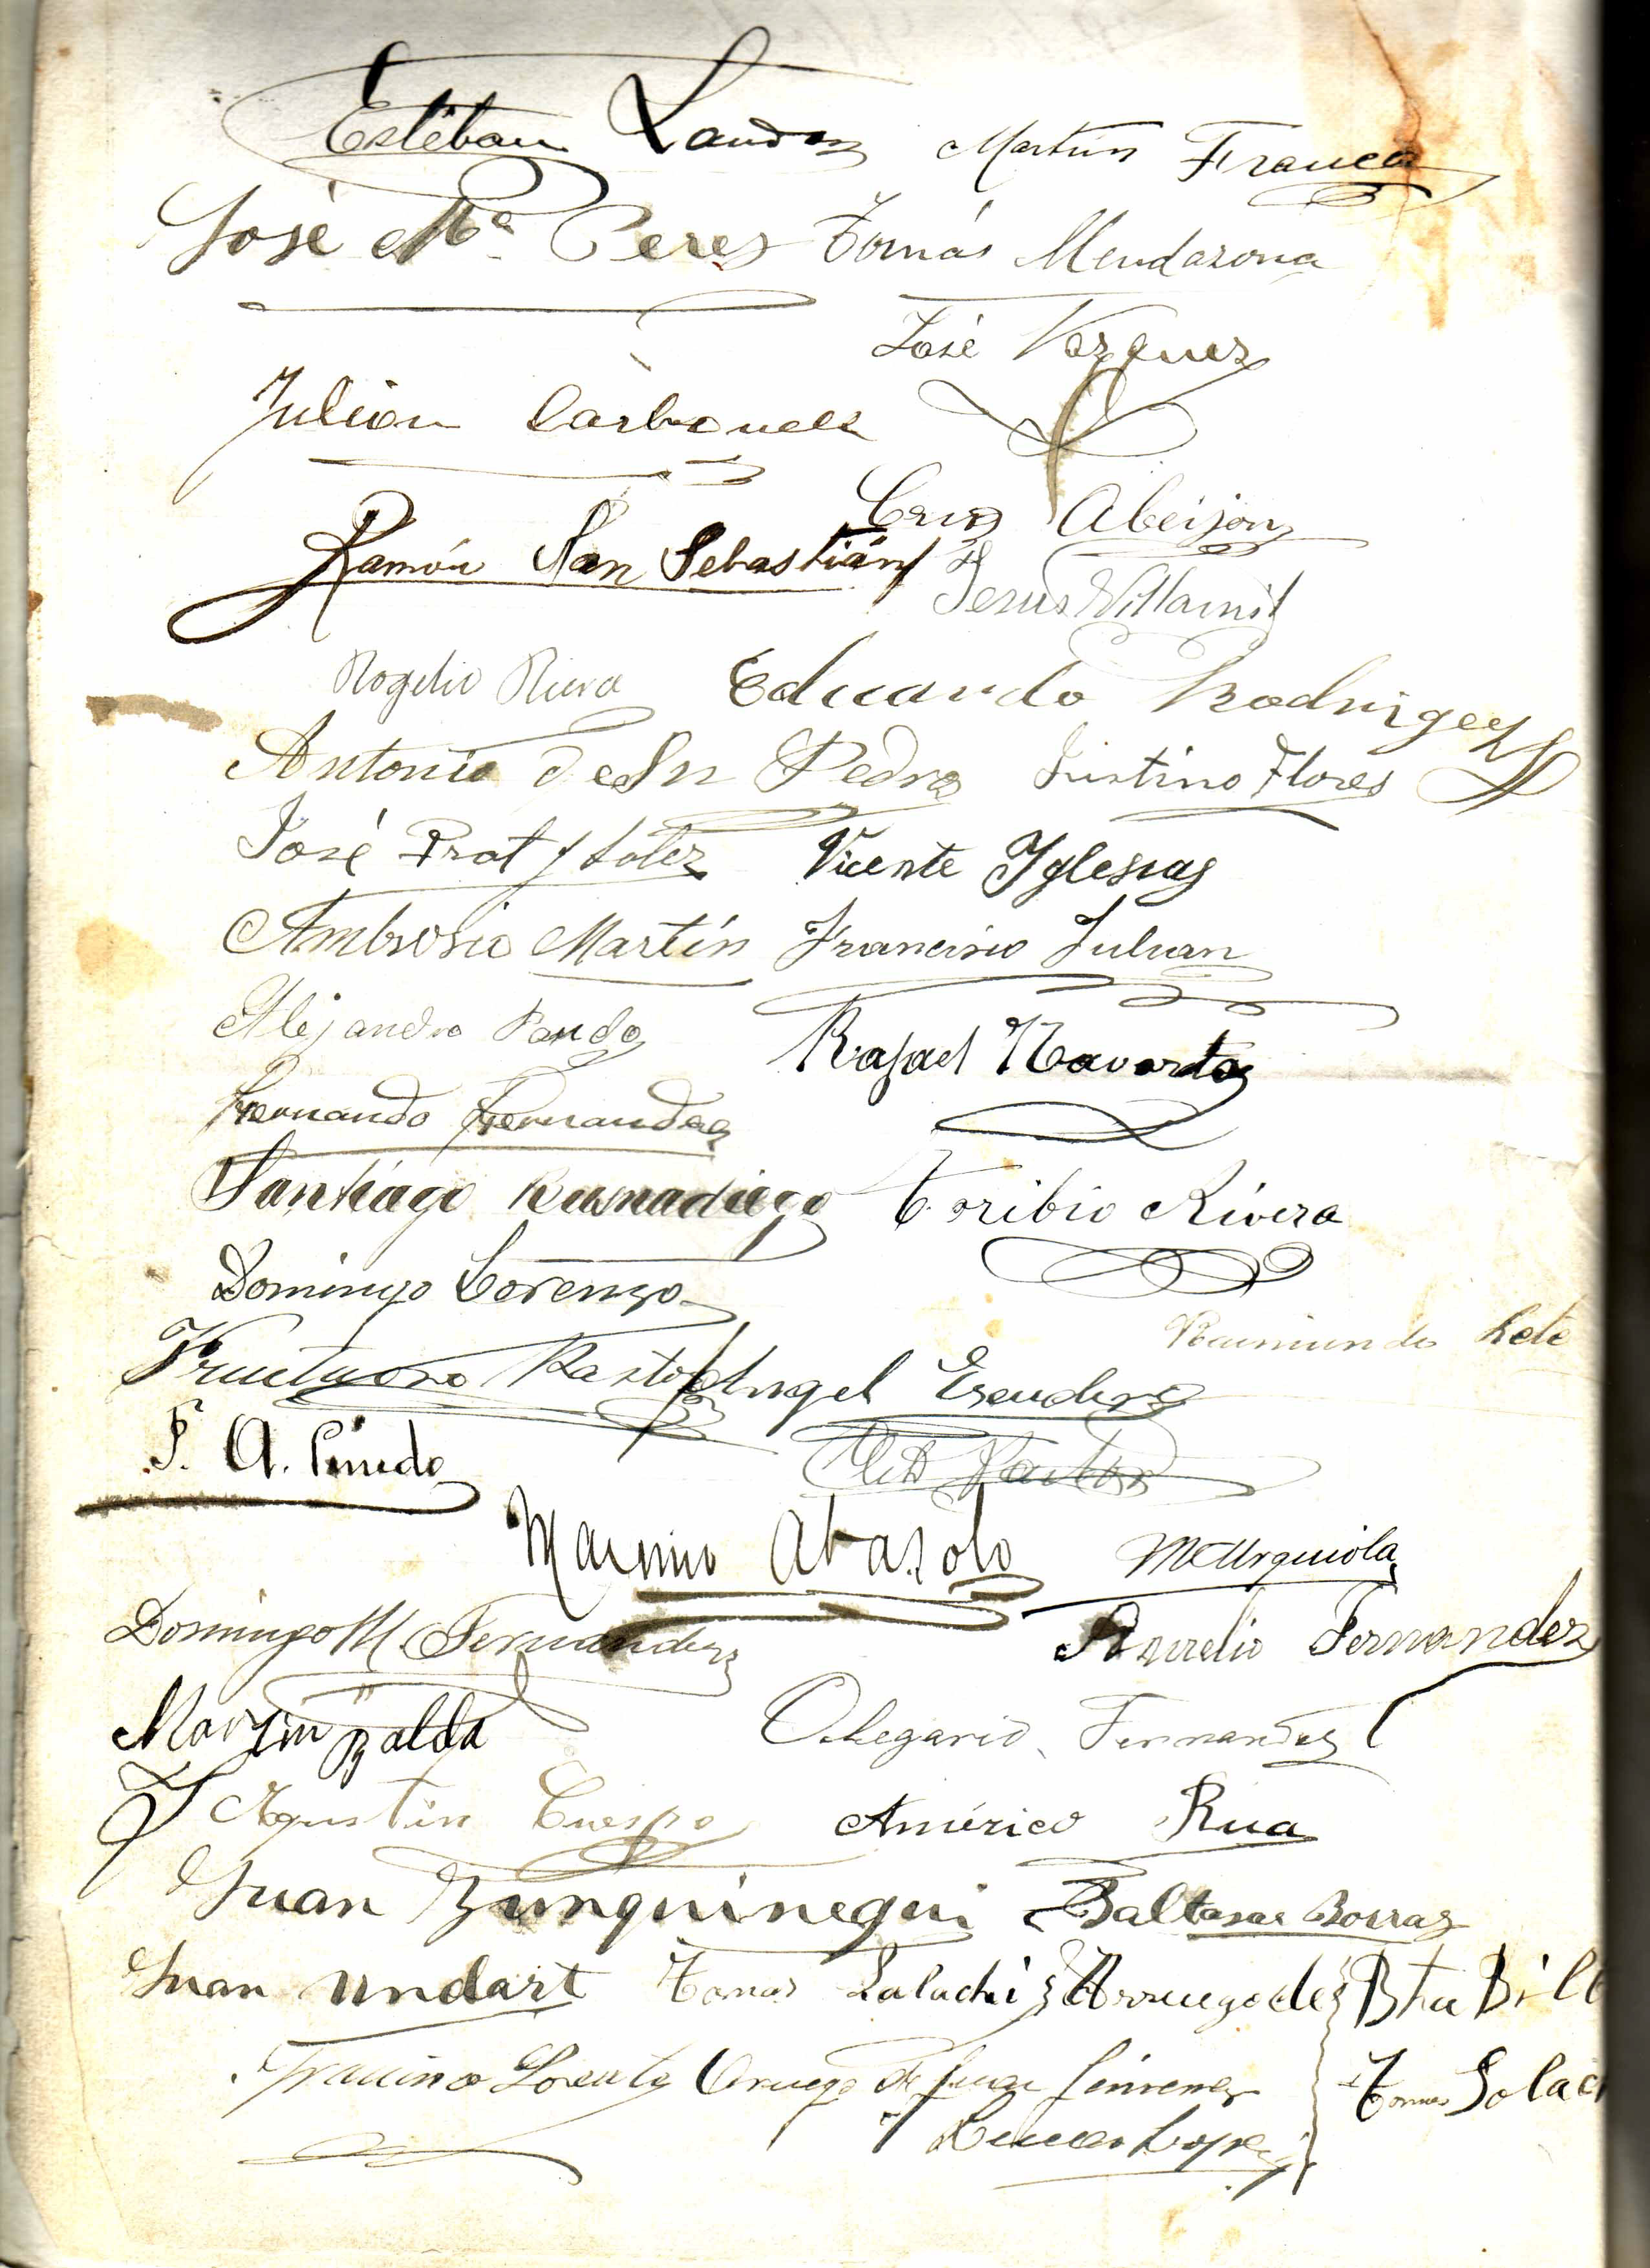 Estéban Landa Martin Franca
José Mª Perez Tomás Mendazona
José Vazquez
Julian Carbonell
Cruz Abeijon
Ramón San Sebastián Jesus Villamil
Rogelio Riera Eduardo Rodriguez
Antonio de Sn Pedro Justino Flores
José Prat y Soler Vicente Yglesias
Ambrosio Martín Francisco Julian
Alejandro Pando
Rafael Navarta
Fernando Fernandez
Santiago Toribio Rivera
Domingo Lorenzo
Raimundo Rete
Fructuoso Pastor Angel Escudero
F. A. Pinedo
Pastor
Maximo Abasolo M Urquiola
Domingo M. Fernandez Aurelio Fernandez
Martin Zalda Olegario Fernandez
Agustin Crespo Américo Rua
Juan Zunquinegui Baltasar Borras
Juan Undart Tomas Bta Bilb
Lorente Juan Jimenez Tomas Solac
Lucas Lopez